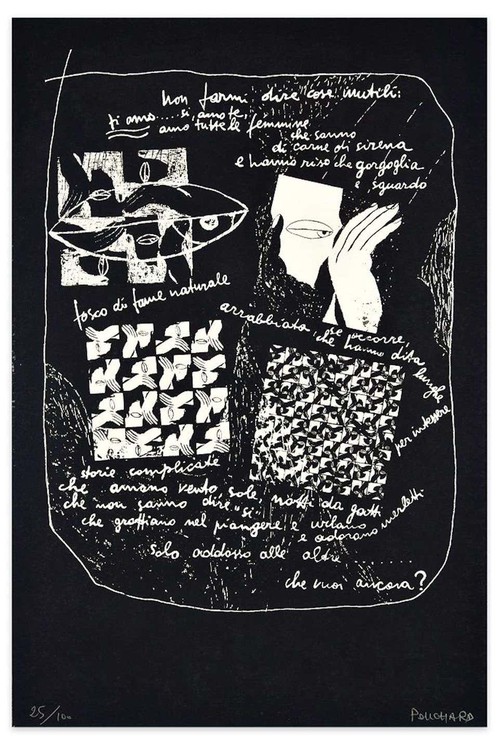 non farmi dire cose inutili:
ti amo... si amo te,
amo tutte le femmine
che sanno
di carne di sirena
e hanno riso che gorgoglia
e sguardo
fosco di fame naturale
arrabbiato, se occorre,
che hanno dita lunghe
per intessere
storie complicate
che amano vento sole, notti da gatti
che non sanno dire "si"
che graffiano nel piangere, e urlano
e adorano merletti
solo addosso alle altre ........
che vuoi ancora?
25/100